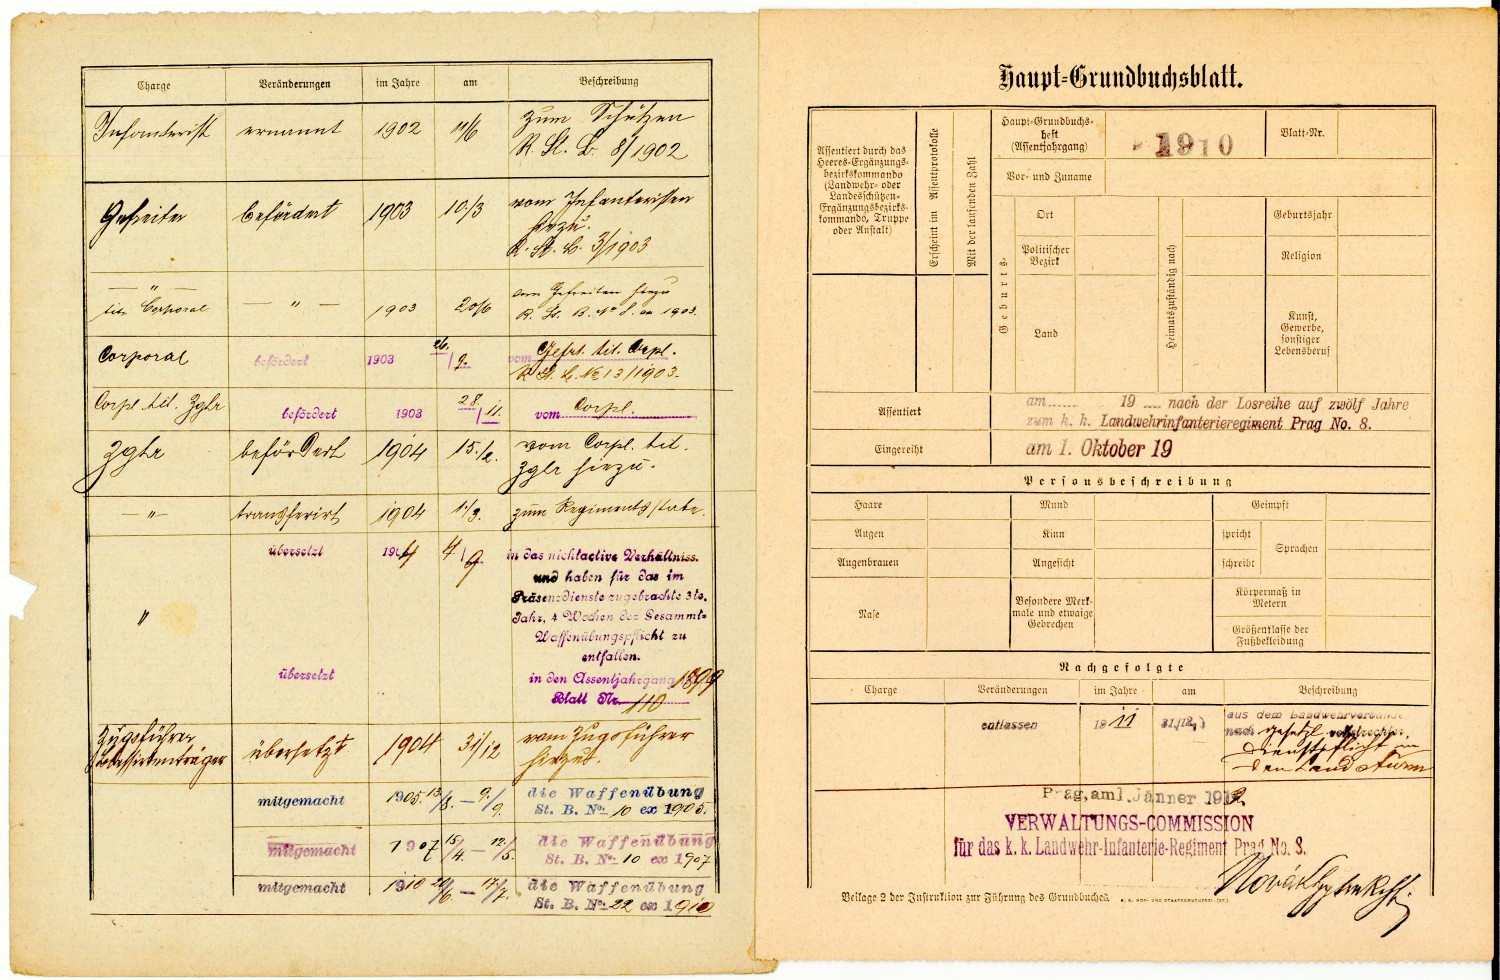 Charge Veränderungen im Jahre am Beschreibung
Infanterist ernannt 1902 11/6 zum Schützen
R. St. B. 8/1902
Gefreiter befördert 1903 10/3 vom Infanteristen
hiezu.
R. St. B. 3/1903
— " —
tit. Corporal — " — 1903 20/6 vom Gefreiten hiezu
R. St. B. No 8. ex 1903.
Corporal befördert 1903 26./9. vom Gefrt. tit. Crpl.
R. St. B. No 13/1903.
Corpl. tit. Zgfr befördert 1903 28./11. vom Corpl.
Zgfr befördert 1904 15./2. vom Corpl. tit.
Zgfr hiezu.
— " — transferirt 1904 1./3. zum Regimentsstabe.
" übersetzt 1904 4/9 in das nichtactive Verhältniss.
und haben für das im
Präsenzdienste zugebrachte 3te.
Jahr, 4 Wochen der Gesammt=
Waffenübungspflicht zu
entfallen.
übersetzt in den Assentjahrgang 1899
Blatt Nr. 110
Zugsführer
übersetzt 1904 31/12 vom Zugsführer
hiezu.
mitgemacht 1905 13./8. — 9./9. die Waffenübung
St. B. No. 10 ex 1905.
mitgemacht 1907 15/4. — 12./5. die Waffenübung
St. B. No. 10 ex 1907
mitgemacht 1910 20/6. — 17/7. die Waffenübung
St. B. No. 22 ex 1910
Haupt=Grundbuchsblatt.
Assentiert durch das
Heeres-Ergänzungs-
bezirkskommando
(Landwehr- oder
Landesschützen-
Ergänzungsbezirks-
kommando, Truppe
oder Anstalt)
Erscheint im Assentprotokolle
Mit der laufenden Zahl
Haupt-Grundbuchs-
heft
(Assentjahrgang)
1910
Blatt-Nr.
Vor- und Zuname
Geburts-
Ort
Politischer
Bezirk
Land
Heimatszuständig nach
Geburtsjahr
Religion
Kunst,
Gewerbe,
sonstiger
Lebensberuf
Assentiert am 19 nach der Losreihe auf zwölf Jahre
zum k. k. Landwehrinfanterieregiment Prag No. 8.
Eingereiht am 1. Oktober 19
Personsbeschreibung
Haare Mund Geimpft
Augen Kinn spricht Sprachen
Augenbrauen Angesicht schreibt
Nase Besondere Merk-
male und etwaige
Gebrechen
Körpermaß in
Metern
Größenklasse der
Fußbekleidung
Nachgefolgte
Charge Veränderungen im Jahre am Beschreibung
entlassen 1911 31./12. aus dem Landwehrverbande
nach gesetzl. vollstreckter
Dienstpflicht in
den Landsturm
Prag, am 1. Jänner 1912
VERWALTUNGS-COMMISSION
für das k. k. Landwehr-Infanterie-Regiment Prag No. 8.
Beilage 2 der Instruktion zur Führung des Grundbuches. K. K. HOF- UND STAATSDRUCKEREI.